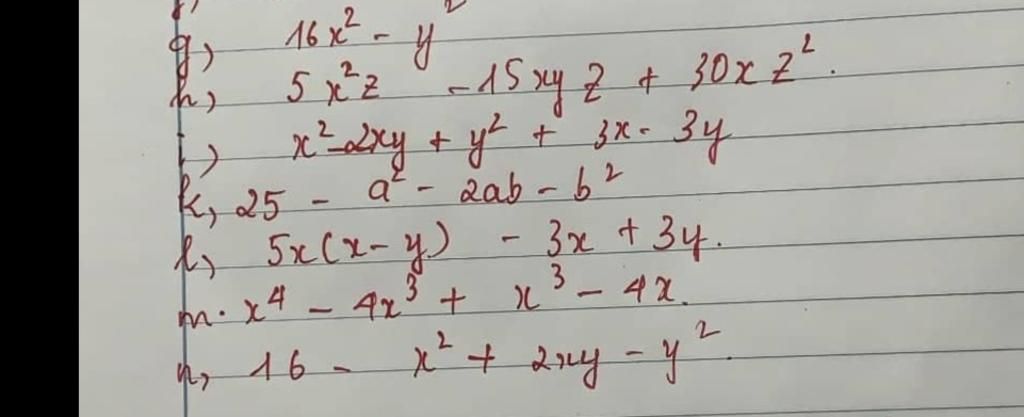 g, 16x² - y²
h, 5x²z - 15xyz + 30xz².
i, x² - 2xy + y² + 3x - 3y
k, 25 - a² - 2ab - b²
l, 5x(x - y) - 3x + 3y.
m. x⁴ - 4x³ + x³ - 4x.
n, 16 - x² + 2xy - y².